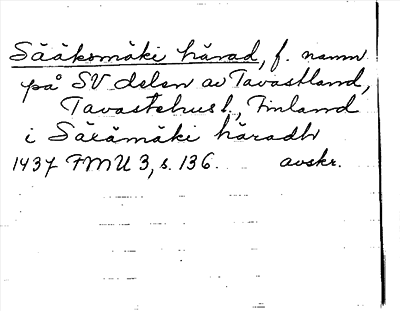 Sääksmäki härad, f. namn
på SV delen av Tavastland,
Tavastehus l., Finland
i Säxämäki häradh
1437 FMU 3, s. 136. avskr.